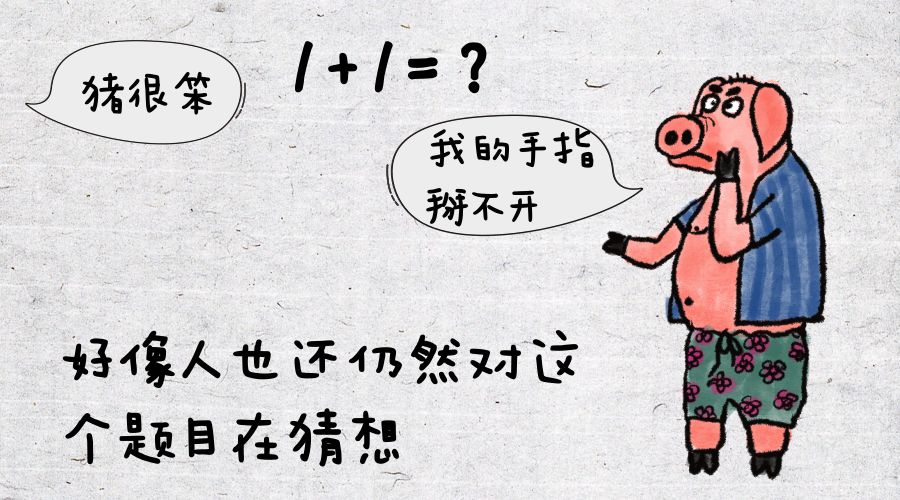 猪很笨
1+1=?
我的手指
掰不开
好像人也还仍然对这
个题目在猜想